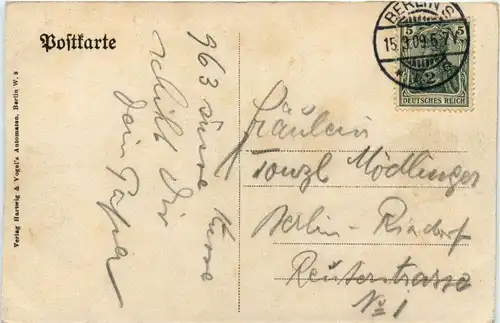 Postkarte
BERLIN S.
15.9.09.6-7V.
5 5
DEUTSCHES REICH
Verlag Hartwig & Vogel's Automaten, Berlin W. 8
963 süsse Küsse
schickt Dir
Dein Papa
Fräulein
Mödlinger
Berlin-Rixdorf
Reuterstrasse
No 1